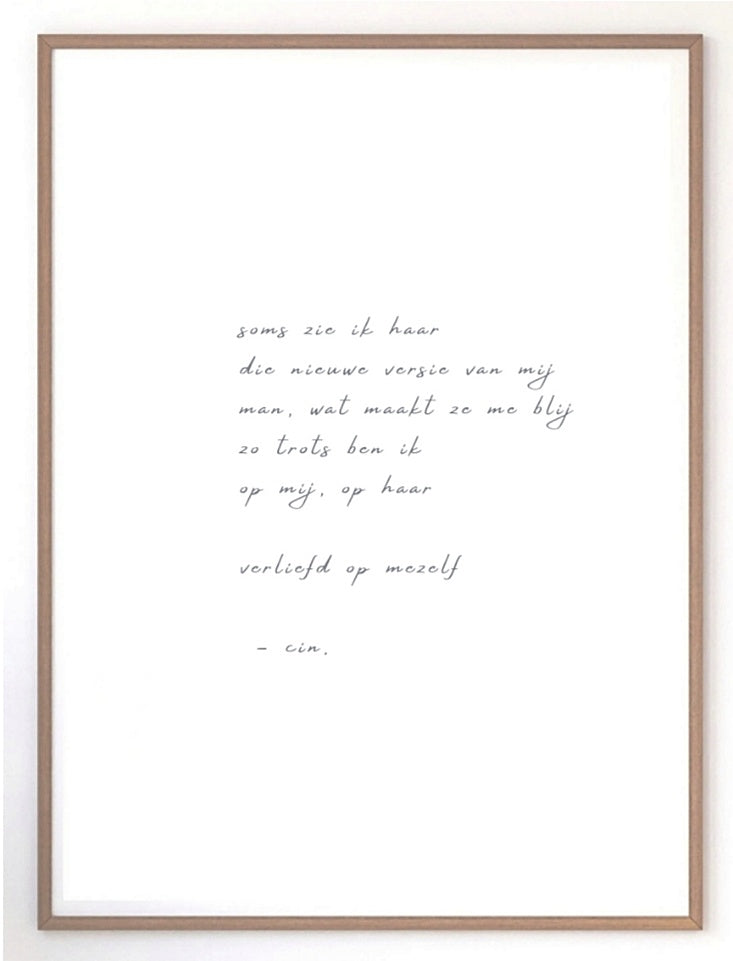 soms zie ik haar
die nieuwe versie van mij
man, wat maakt ze me blij
zo trots ben ik
op mij, op haar
verliefd op mezelf
- cin.